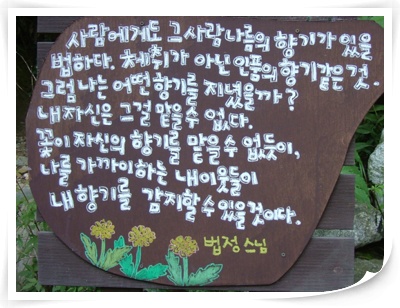 사람에게도 그 사람 나름의 향기가 있을
법하다. 체취가 아닌 인품의 향기같은 것.
그럼 나는 어떤 향기를 지녔을까?
내 자신은 그걸 맡을 수 없다.
꽃이 자신의 향기를 맡을 수 없듯이,
나를 가까이하는 내 이웃들이
내 향기를 감지할 수 있을 것이다.
법정 스님